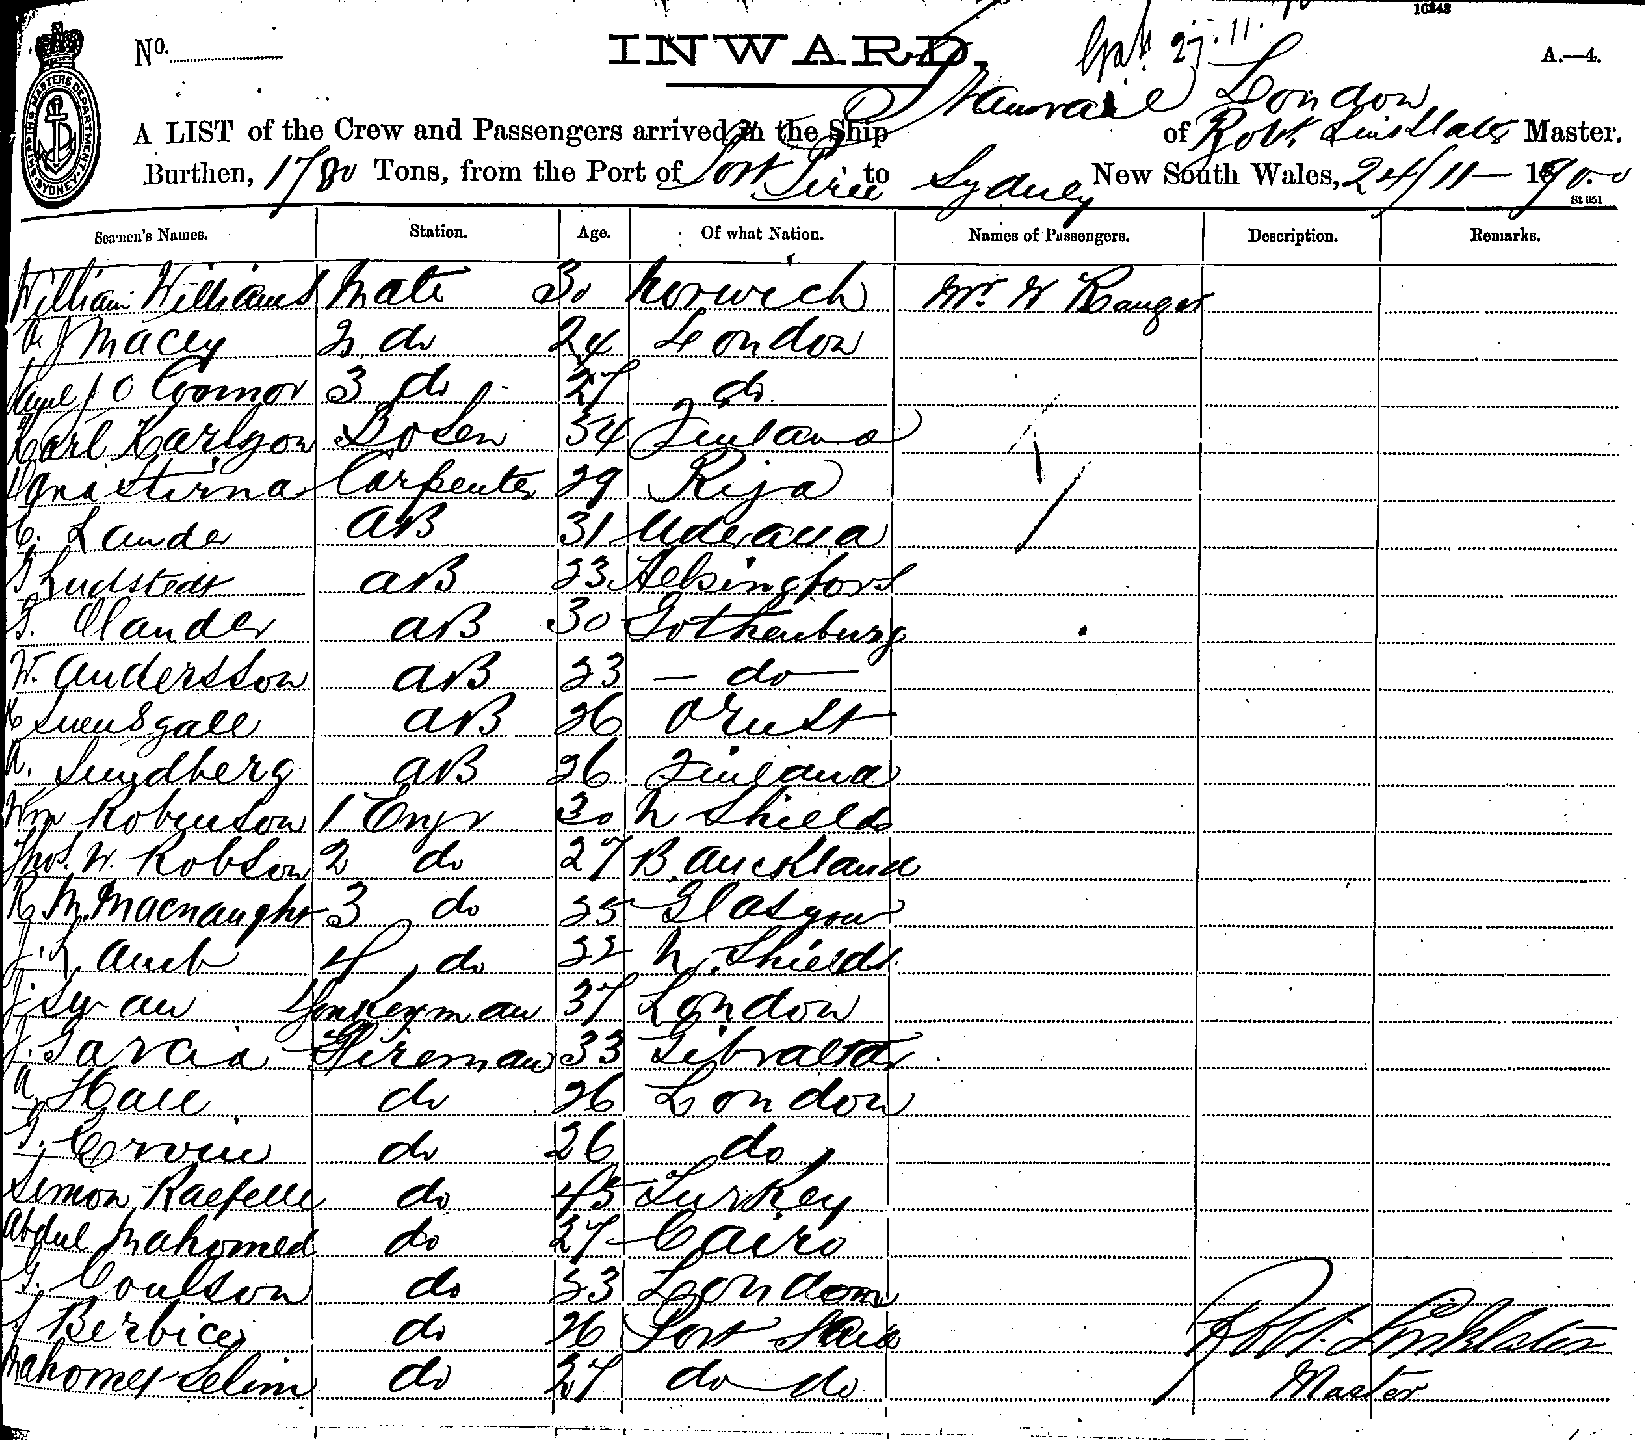 10248
No.
INWARD.
27.11.
A.—4.
A LIST of the Crew and Passengers arrived in the Ship of London Robt Linklater Master.
Burthen, 1780 Tons, from the Port of Port Pirie to Sydney New South Wales, 24/11 - 1900
St 351
Seamen's Names. Station. Age. Of what Nation. Names of Passengers. Description. Remarks.
William Williams Mate 30 Norwich Mr. W Ranger
J Macey 2 do 24 London
J O Connor 3 do 27 do
Karl Karlson Bosen 34 Finland
Stirna Carpenter 29 Riga
C. Lander AB 31
G Lindstedt AB 23 Helsingfors
G. Olander AB 30 Gothenburg
W. Andersson AB 23 - do -
AB 26 Orust
A. Sundberg AB 26 Finland
Wm Robinson 1 Engr 30 N Shields
Thos. W. Robson 2 do 27 B. Auckland
R. M. Macnaught 3 do 25 Glasgow
J. 4 do 22 N. Shields
J. Donkeyman 37 London
J. Garcia Fireman 33 Gibraltar
A Hall do 26 London
do 26 do
Simon do 45 Turkey
Abdul Mahomed do 27 Cairo
G. Coulson do 23 London
J Berbice do 26 Port Said
Mahomet Selim do 27 do do
Robt. Linklater
Master